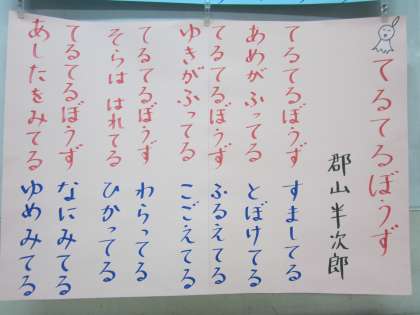 てるてるぼうず
郡山半次郎
てるてるぼうず すましてる
あめがふってる とぼけてる
てるてるぼうず ふるえてる
ゆきがふってる こごえてる
てるてるぼうず わらってる
そらは はれてる ひかってる
てるてるぼうず なにみてる
あしたをみてる ゆめみてる